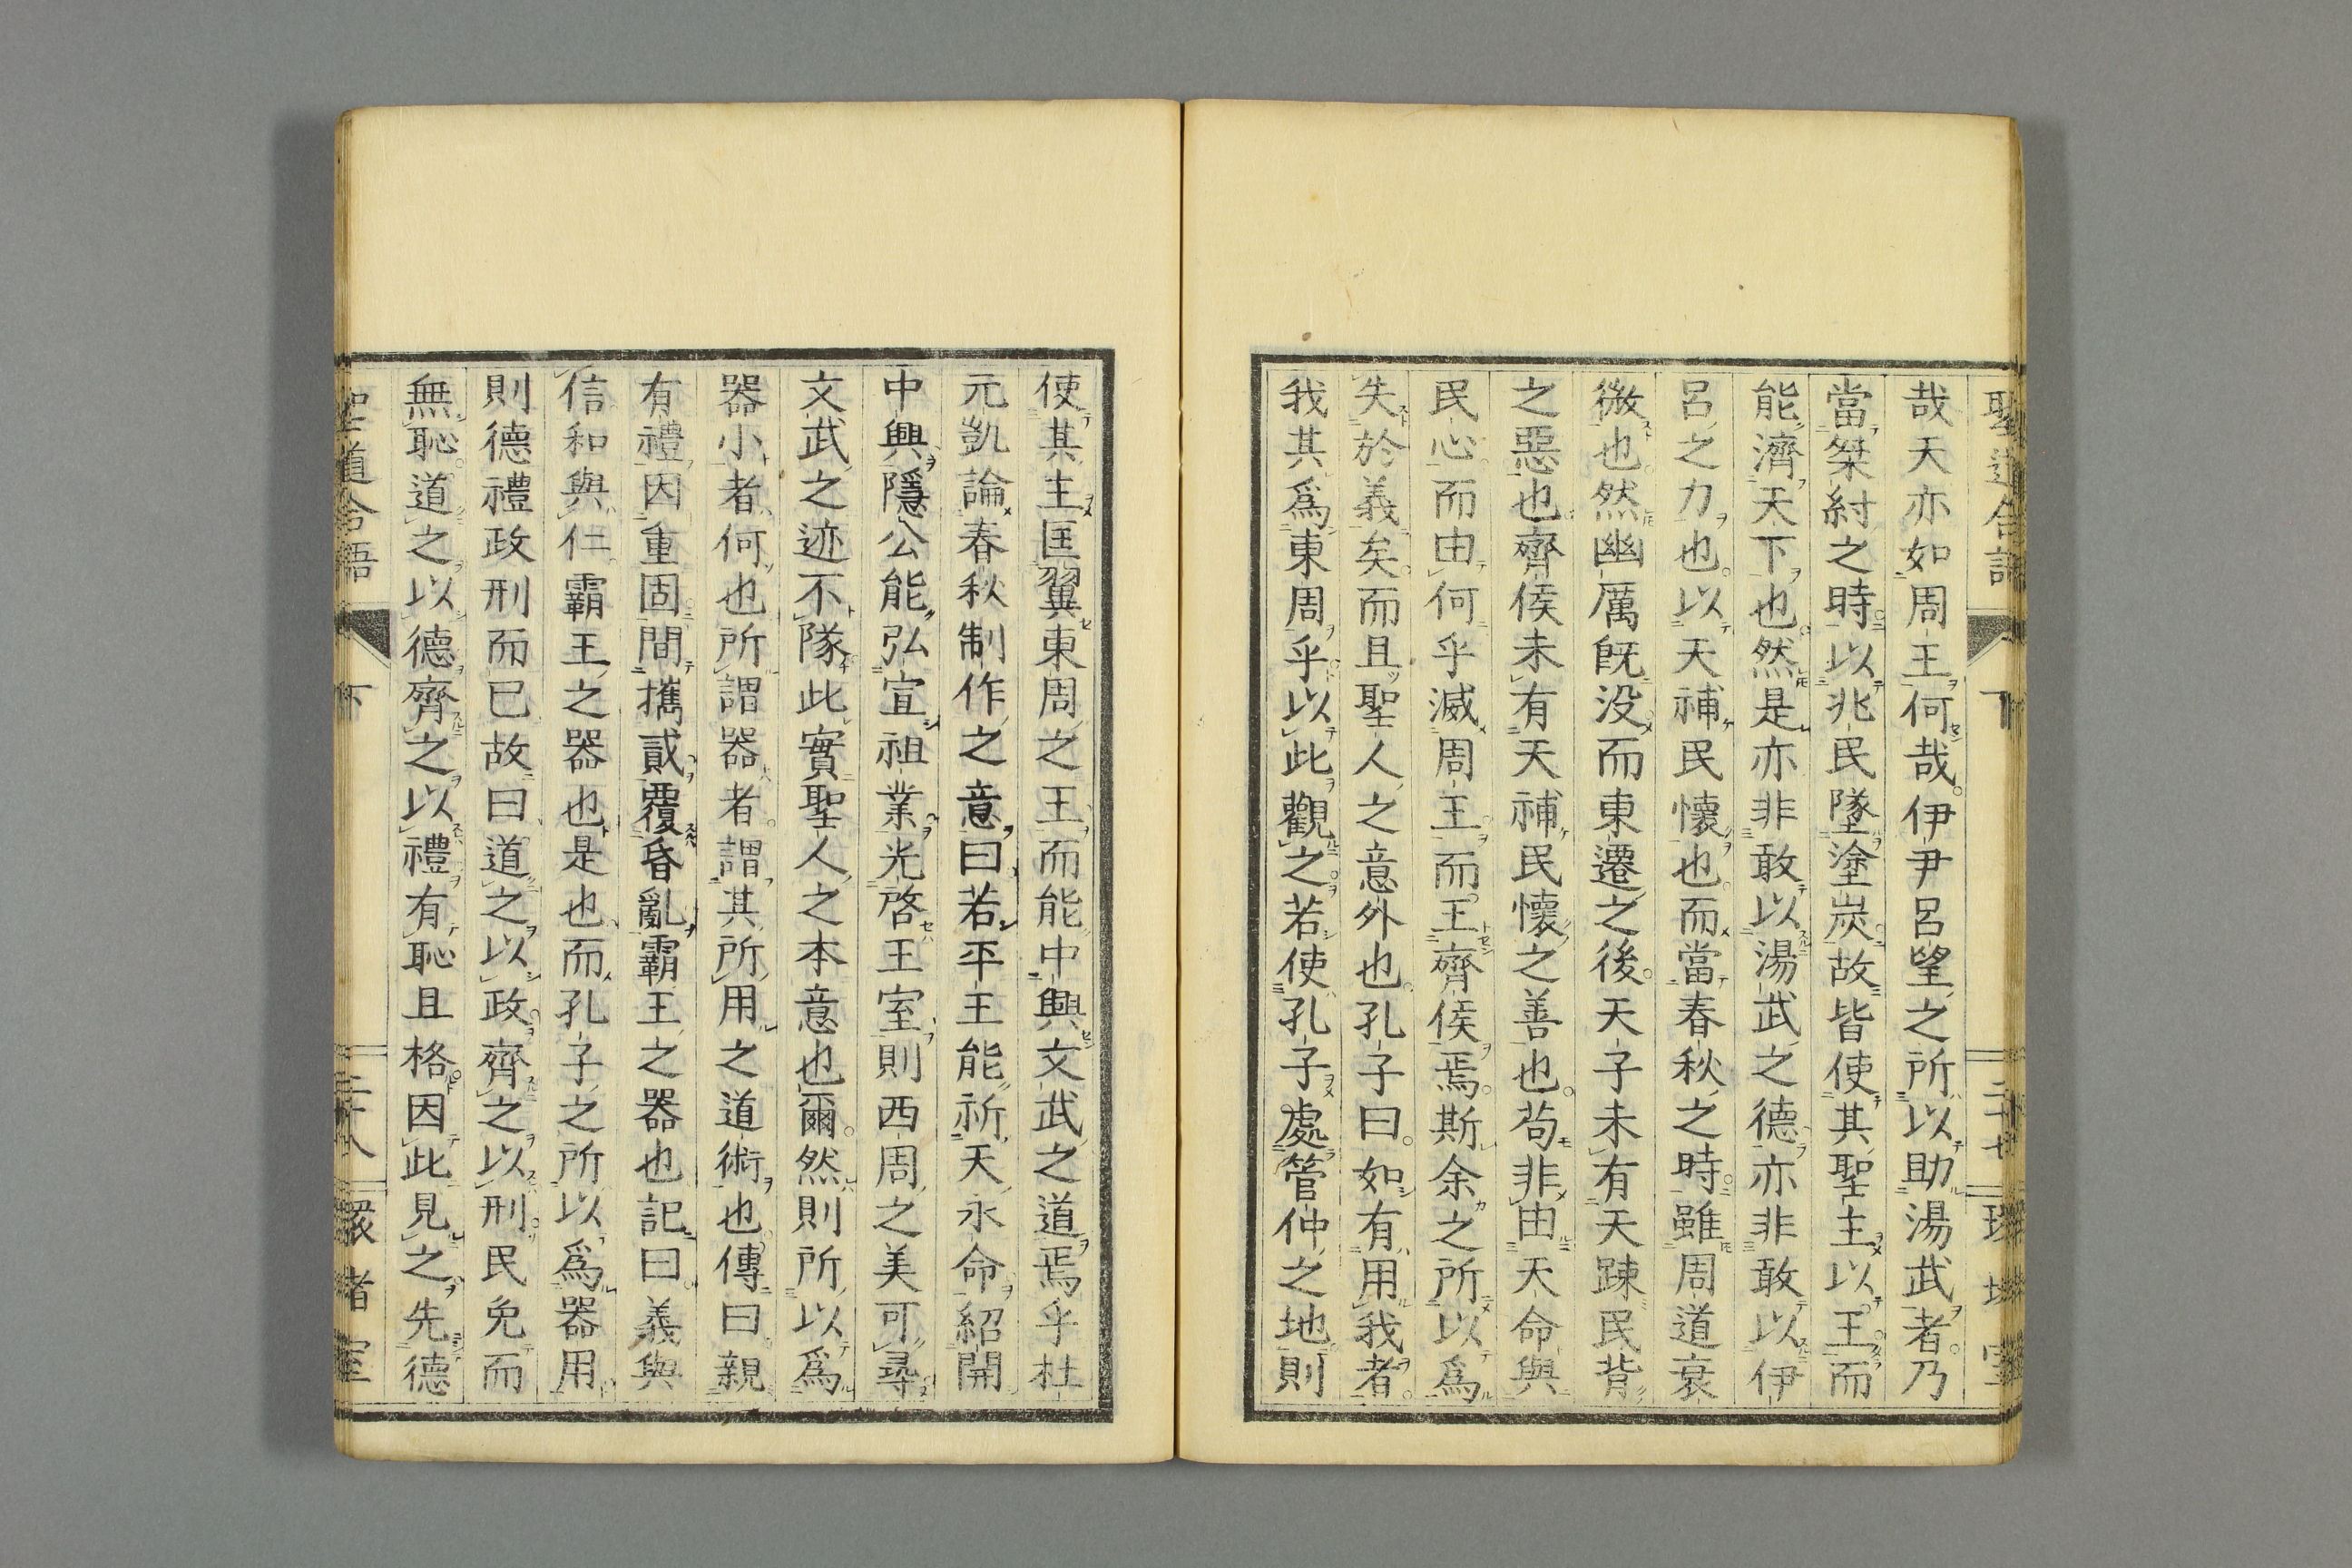 聖道合語 下 二十七
哉天亦如周王何哉伊尹呂望之所以助湯武者乃
當桀紂之時以兆民墜塗炭故皆使其聖主以王而
能濟天下也然是亦非敢以湯武之德亦非敢以伊
呂之力也以天補民懷也而當春秋之時雖周道衰
微也然幽厲既没而東遷之後天子未有天踈民背
之惡也齊侯未有天補民懷之善也苟非由天命與
民心而由何乎滅周王而王齊侯焉斯余之所以爲
失於義矣而且聖人之意外也孔子曰如有用我者
我其爲東周乎以此觀之若使孔子處管仲之地則
使其主匡翼東周之王而能中興文武之道焉乎杜
元凱論春秋制作之意曰若平王能祈天永命紹開
中興隱公能弘宣祖業光啓王室則西周之美可尋
文武之迹不隊此實聖人之本意也爾然則所以爲
器小者何也所謂器者謂其所用之道術也傳曰親
有禮因重固間攜貳覆昏亂霸王之器也記曰義與
信和與仁霸王之器也是也而孔子之所以爲器用
則德禮政刑而已故曰道之以政齊之以刑民免而
無恥道之以德齊之以禮有恥且格因此見之先德
聖道合語 下 二十八